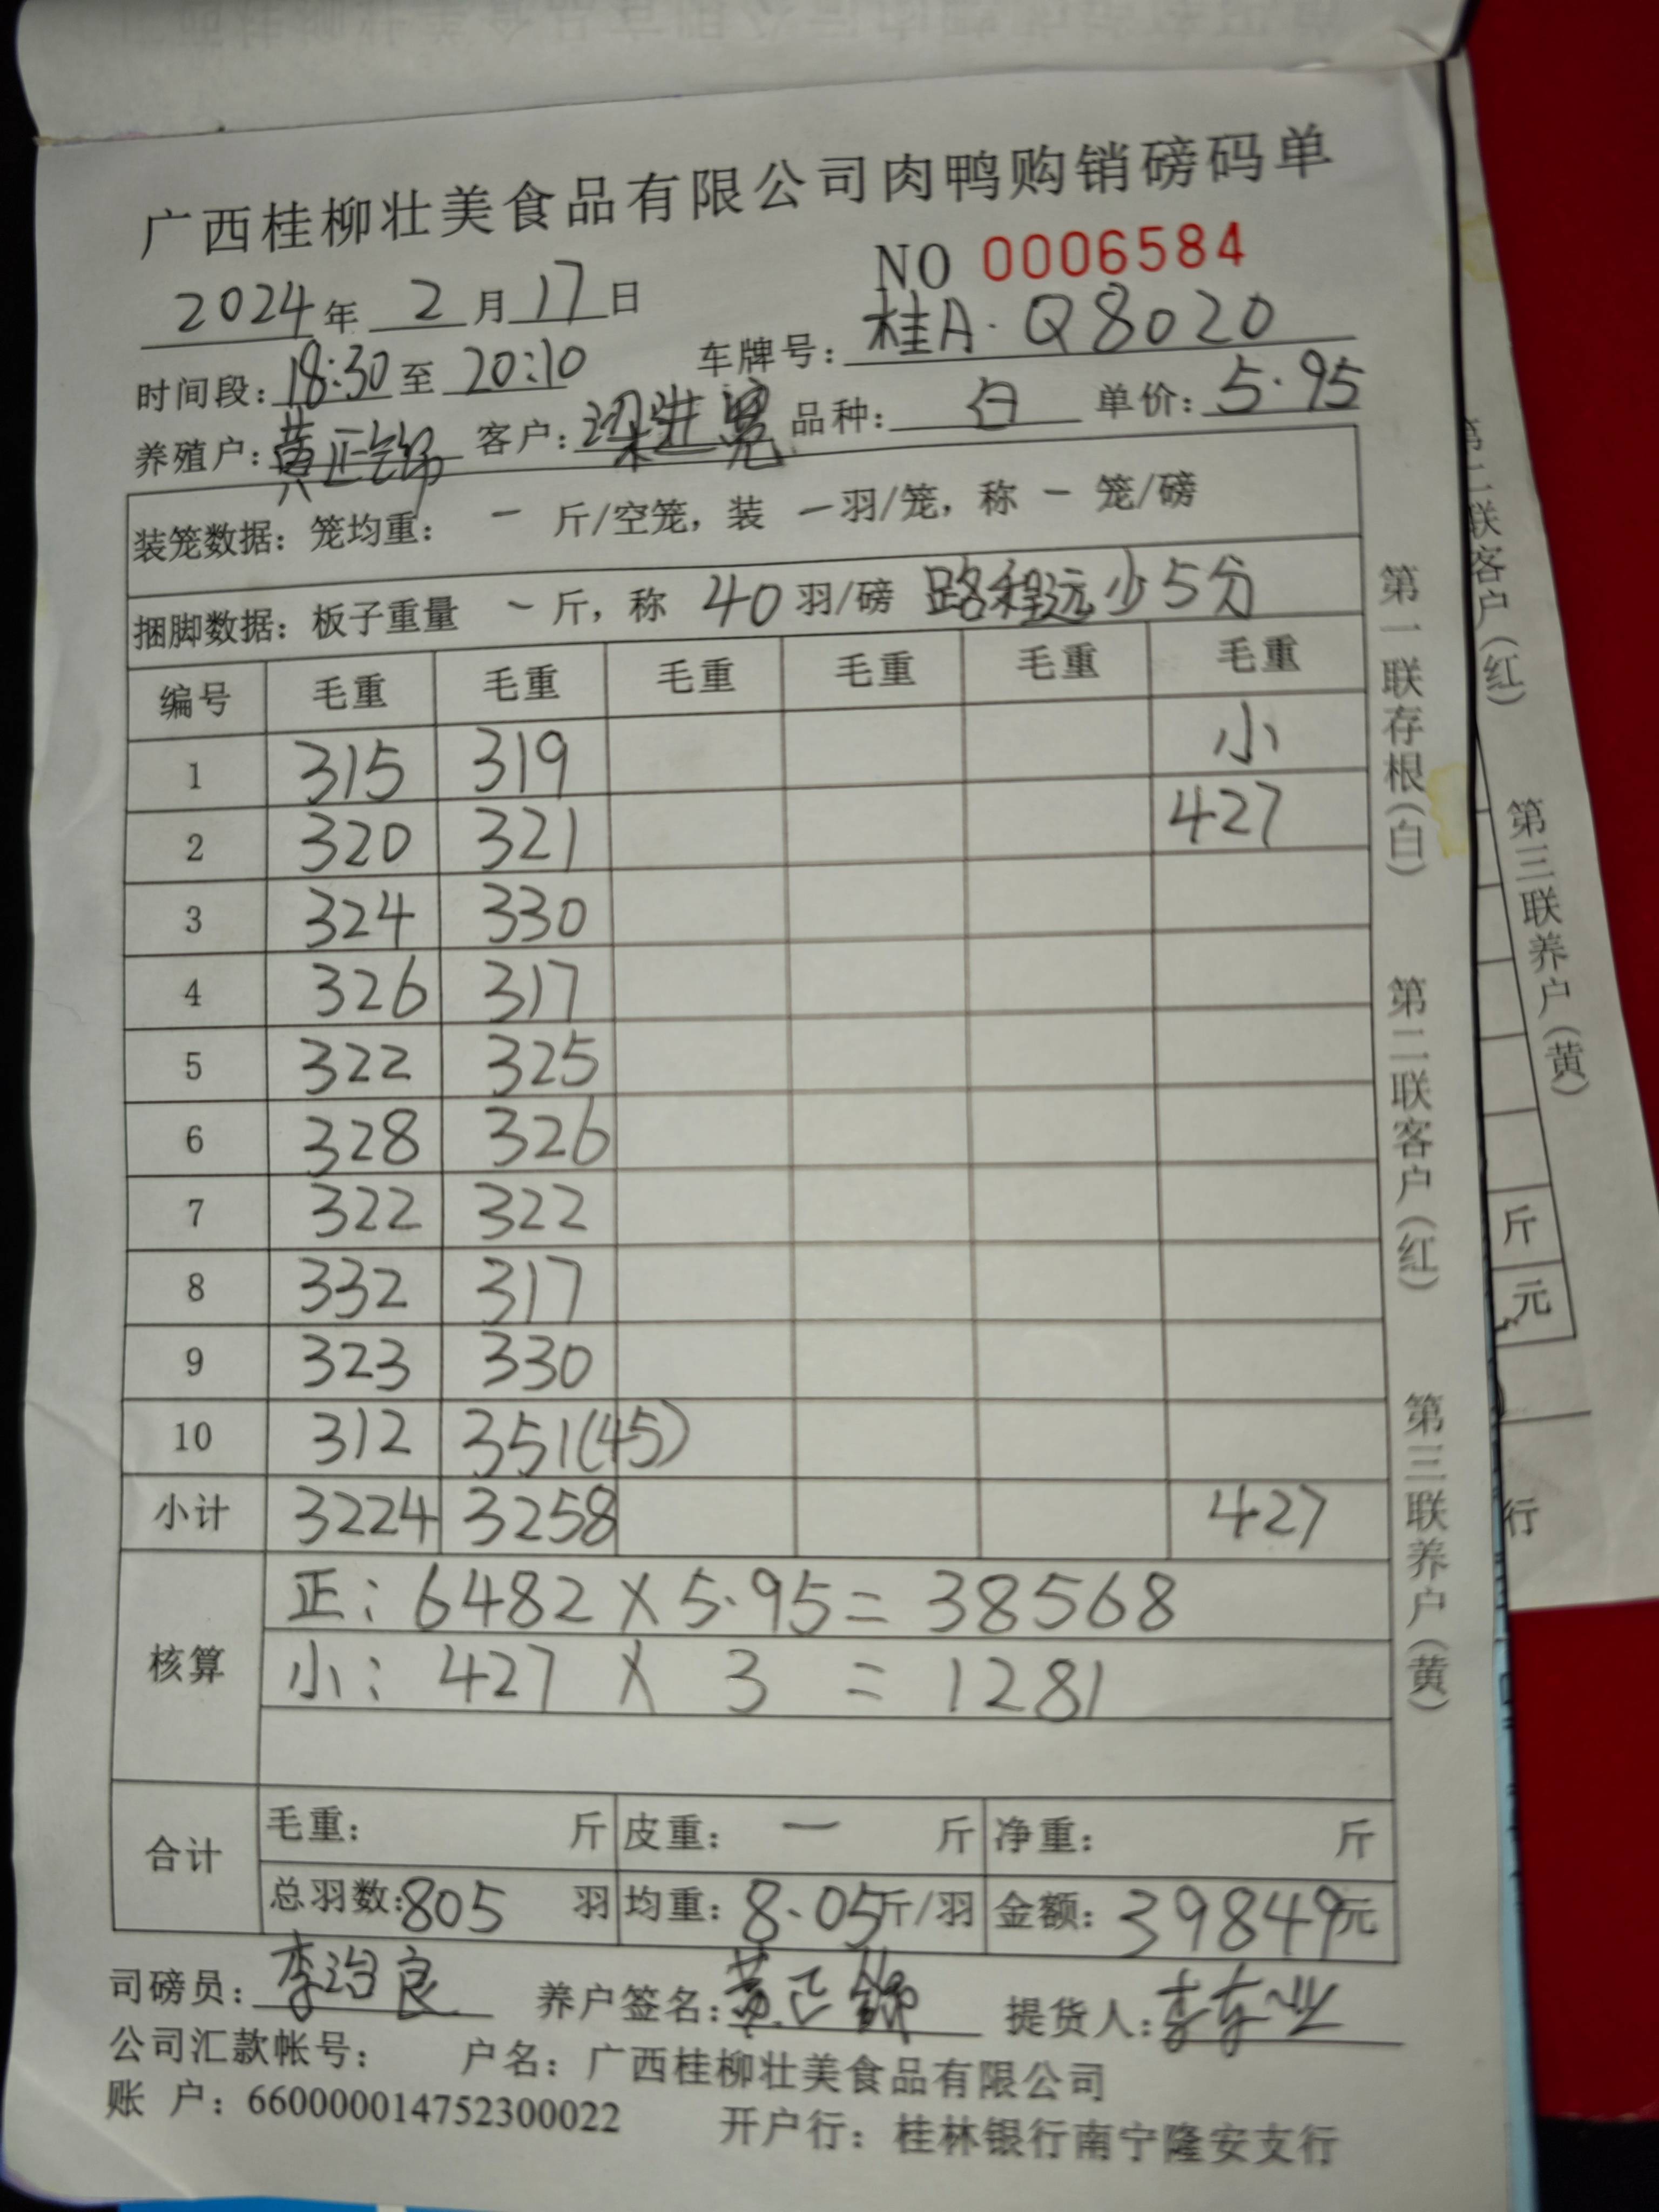 广西桂柳壮美食品有限公司肉鸭购销磅码单
NO 0006584
2024年 2月17日
时间段：18:30至 20:10 车牌号：桂A·Q8020
养殖户：黄正锦 客户：梁进宽 品种：白 单价：5.95
装笼数据：笼均重： — 斤/空笼，装 —羽/笼，称 — 笼/磅
捆脚数据：板子重量 — 斤，称 40 羽/磅 路程远少5分
编号 毛重 毛重 毛重 毛重 毛重 毛重
1 315 319 小
2 320 321 427
3 324 330
4 326 317
5 322 325
6 328 326
7 322 322
8 332 317
9 323 330
10 312 351(45)
小计 3224 3258 427
核算
正：6482 X 5.95 = 38568
小：427 X 3 = 1281
合计
毛重： 斤 皮重： — 斤 净重： 斤
总羽数：805 羽 均重：8.05斤/羽 金额：39849元
司磅员：李治良 养户签名：黄正锦 提货人：
公司汇款帐号： 户名：广西桂柳壮美食品有限公司
账 户：660000014752300022 开户行：桂林银行南宁隆安支行
第一联存根（白） 第二联客户（红） 第三联养户（黄）
第二联客户（红） 第三联养户（黄）
斤
元
行